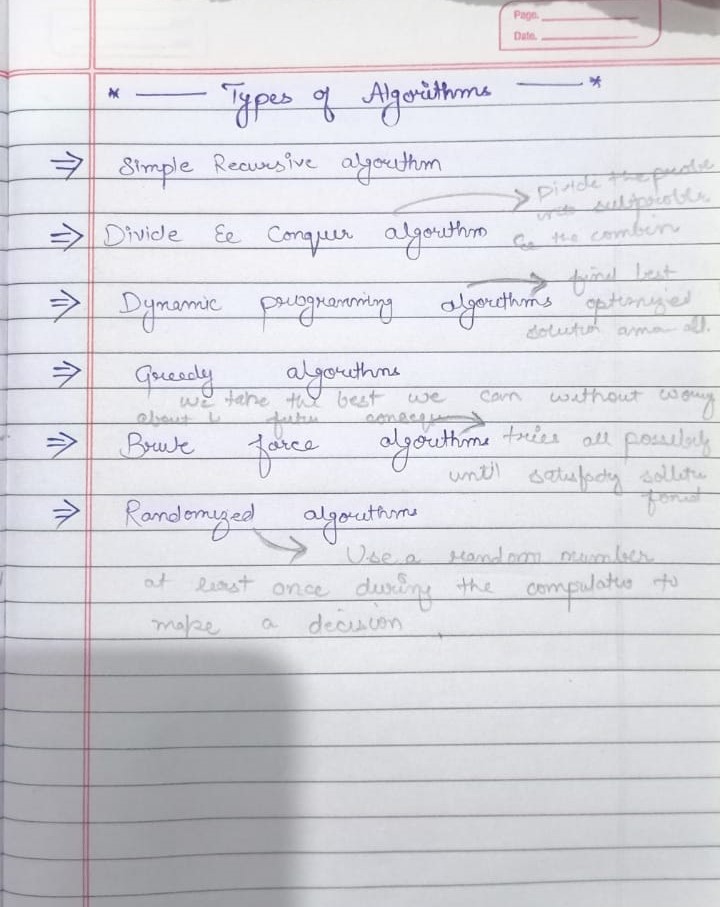 Page.
Date.
* — Types of Algorithms — *
⇒ Simple Recursive algorithm
Divide the proble
subproble
⇒ Divide & Conquer algorithm
& the combin
find best
⇒ Dynamic programming algorithms optimized
solution amo all.
⇒ Greedy algorithms
we take the best we can without worry
about futu consequ
⇒ Brute force algorithms tries all possibly
until satisfady solutio
fond
⇒ Randomized algorithms
Use a random number
at least once during the computatio to
make a decision